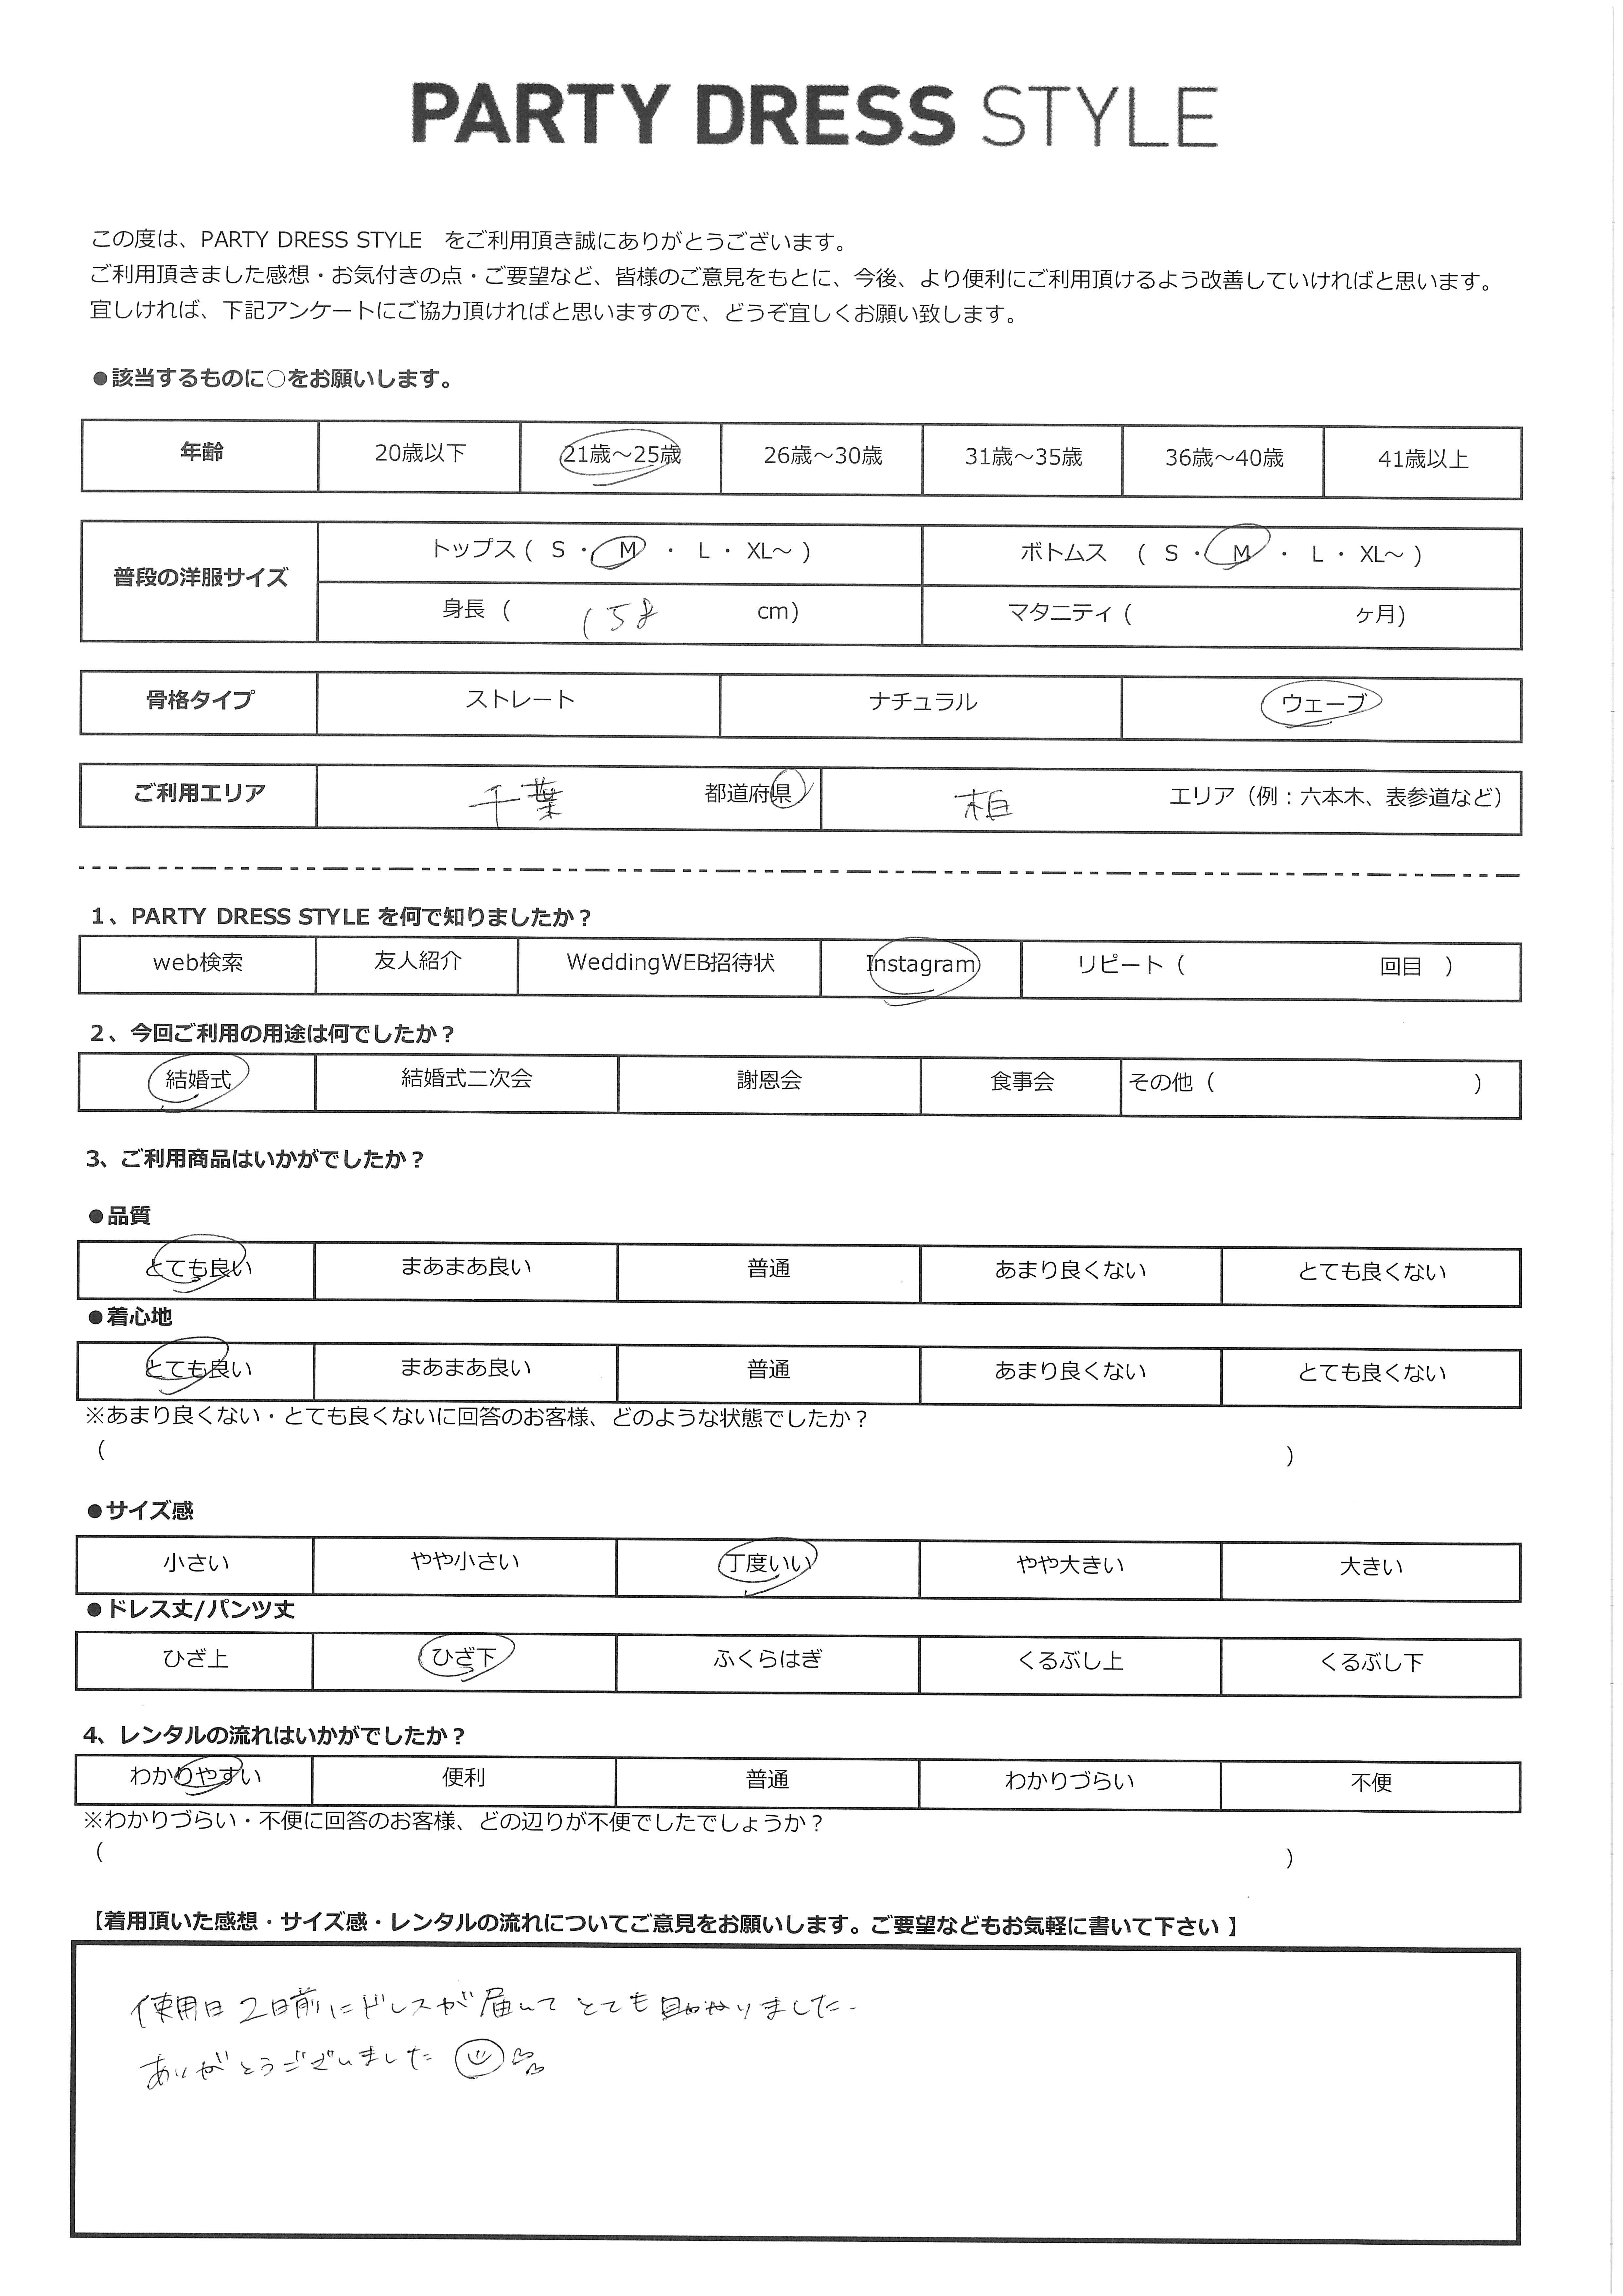 PARTY DRESS STYLE
この度は、PARTY DRESS STYLE　をご利用頂き誠にありがとうございます。
ご利用頂きました感想・お気付きの点・ご要望など、皆様のご意見をもとに、今後、より便利にご利用頂けるよう改善していければと思います。
宜しければ、下記アンケートにご協力頂ければと思いますので、どうぞ宜しくお願い致します。
●該当するものに○をお願いします。
年齢 20歳以下 21歳～25歳 26歳～30歳 31歳～35歳 36歳～40歳 41歳以上
普段の洋服サイズ
トップス ( S ・ M ・ L ・ XL～ ) ボトムス ( S ・ M ・ L ・ XL～ )
身長 ( 158 cm) マタニティ ( ヶ月)
骨格タイプ ストレート ナチュラル ウェーブ
ご利用エリア 千葉 都道府県 柏 エリア（例：六本木、表参道など）
1、PARTY DRESS STYLE を何で知りましたか？
web検索 友人紹介 WeddingWEB招待状 Instagram リピート（ 回目 ）
2、今回ご利用の用途は何でしたか？
結婚式 結婚式二次会 謝恩会 食事会 その他（ ）
3、ご利用商品はいかがでしたか？
●品質
とても良い まあまあ良い 普通 あまり良くない とても良くない
●着心地
とても良い まあまあ良い 普通 あまり良くない とても良くない
※あまり良くない・とても良くないに回答のお客様、どのような状態でしたか？
（ ）
●サイズ感
小さい やや小さい 丁度いい やや大きい 大きい
●ドレス丈/パンツ丈
ひざ上 ひざ下 ふくらはぎ くるぶし上 くるぶし下
4、レンタルの流れはいかがでしたか？
わかりやすい 便利 普通 わかりづらい 不便
※わかりづらい・不便に回答のお客様、どの辺りが不便でしたでしょうか？
（ ）
【着用頂いた感想・サイズ感・レンタルの流れについてご意見をお願いします。ご要望などもお気軽に書いて下さい 】
使用日2日前にドレスが届いてとても助かりました
ありがとうございました